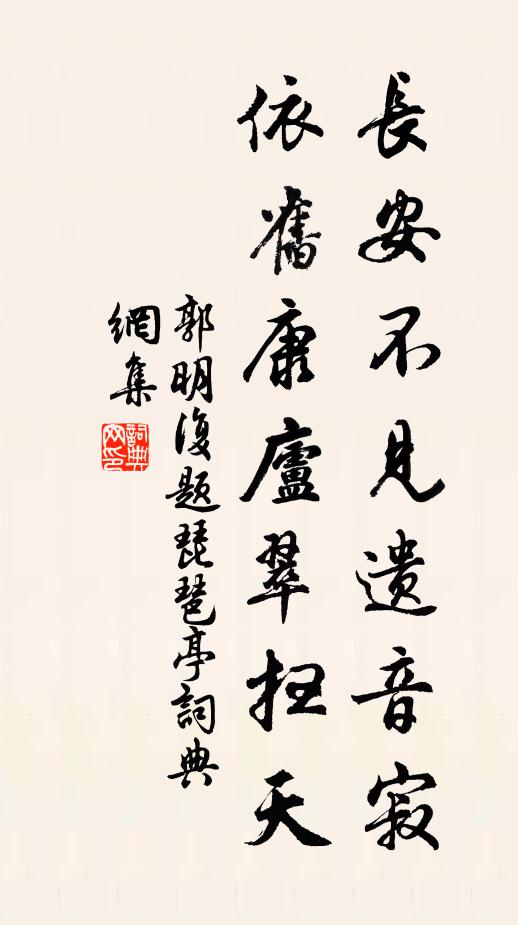 長安不見遺音寂
依舊康廬翠掃天
郭明復題琵琶亭詞典
網集
詞典網印